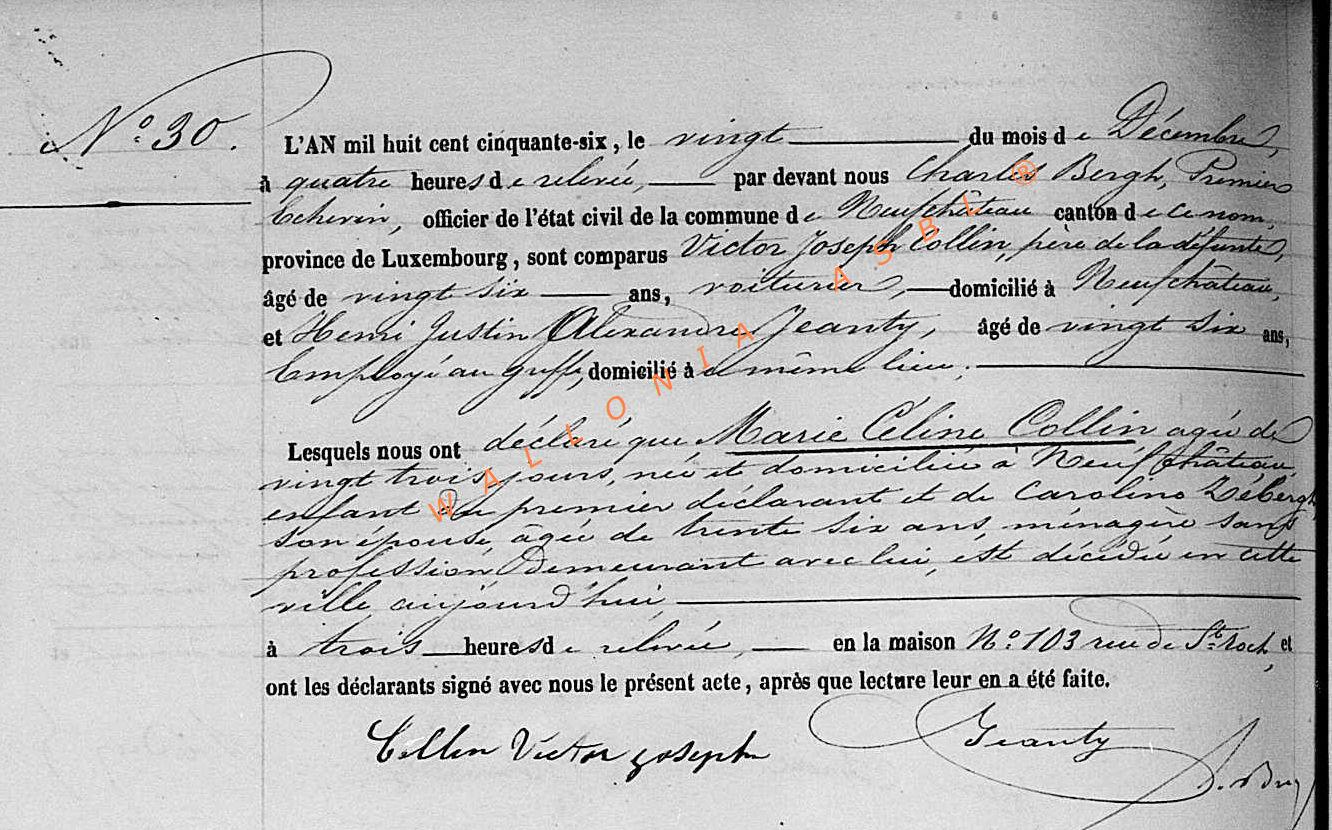 N.º 30.
L'AN mil huit cent cinquante-six, le vingt du mois de Décembre,
à quatre heures de relevée, par devant nous Charles Bergh, Premier
Echevin, officier de l'état civil de la commune de Neufchâteau canton de ce nom,
province de Luxembourg, sont comparus Victor Joseph Collin, père de la défunte,
âgé de vingt six ans, voiturier, domicilié à Neufchâteau,
et Henri Justin Alexandre Jeanty, âgé de vingt six ans,
Employé au Greffe, domicilié à même lieu;
Lesquels nous ont déclaré que Marie Céline Collin agée de
vingt trois jours, née et domiciliée à Neufchâteau,
enfant du premier déclarant et de Caroline
son épouse, âgée de trente six ans, ménagère sans
profession Demeurant avec lui, est décédée en cette
ville aujourd'hui,
à trois heures de relevée, en la maison N.º 103 rue de St. Roch, et
ont les déclarants signé avec nous le présent acte, après que lecture leur en a été faite.
Collin Victor joseph
Jeanty
WALLONIA ASBL ®